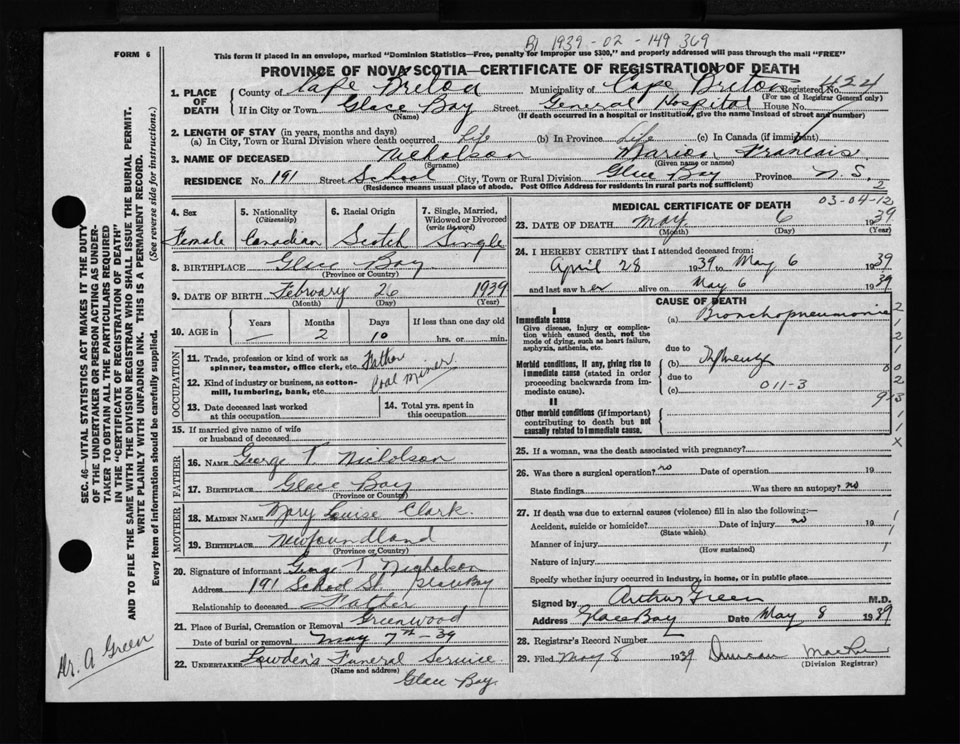 B1 1939-02-149 369
FORM 6
This form if placed in an envelope, marked "Dominion Statistics—Free, penalty for improper use $300," and properly addressed will pass through the mail "FREE"
PROVINCE OF NOVA SCOTIA—CERTIFICATE OF REGISTRATION OF DEATH
1. PLACE OF DEATH
County of Cape Breton Municipality of Cape Breton Registered No. 424
(For use of Registrar General only)
If in City or Town Glace Bay Street General Hospital House No.
(Name) (If death occurred in a hospital or institution, give the name instead of street and number)
2. LENGTH OF STAY (in years, months and days)
(a) In City, Town or Rural Division where death occurred Life (b) In Province Life (c) In Canada (if immigrant)
3. NAME OF DECEASED Nicholson Marion Francais
(Surname) (Given name or names)
RESIDENCE No. 191 Street School City, Town or Rural Division Glace Bay Province N.S.
(Residence means usual place of abode. Post Office Address for residents in rural parts not sufficient) 2
4. Sex Female
5. Nationality (Citizenship) Canadian
6. Racial Origin Scotch
7. Single, Married, Widowed or Divorced (write the word) Single
8. BIRTHPLACE Glace Bay
(Province or Country)
9. DATE OF BIRTH February 26 1939
(Month) (Day) (Year)
10. AGE in Years — Months 2 Days 10 If less than one day old
hrs. or min.
OCCUPATION
11. Trade, profession or kind of work as spinner, teamster, office clerk, etc. Father
12. Kind of industry or business, as cotton-mill, lumbering, bank, etc. Coal Miner
13. Date deceased last worked at this occupation
14. Total yrs. spent in this occupation
15. If married give name of wife or husband of deceased
FATHER
16. NAME George T. Nicholson
17. BIRTHPLACE Glace Bay
(Province or Country)
MOTHER
18. MAIDEN NAME Mary Louise Clark
19. BIRTHPLACE Newfoundland
(Province or Country)
20. Signature of informant George T. Nicholson
Address 191 School St. Glace Bay
Relationship to deceased Father
21. Place of Burial, Cremation or Removal Greenwood
Date of burial or removal May 7th - 39
22. UNDERTAKER Lowden's Funeral Service
(Name and address)
Glace Bay
MEDICAL CERTIFICATE OF DEATH 03-04-12
23. DATE OF DEATH May 6 1939
(Month) (Day) (Year)
24. I HEREBY CERTIFY that I attended deceased from:
April 28 1939 to May 6 1939
and last saw her alive on May 6 1939
CAUSE OF DEATH
I
Immediate cause
Give disease, injury or complication which caused death, not the mode of dying, such as heart failure, asphyxia, asthenia, etc.
(a) Bronchopneumonia
due to
Morbid conditions, if any, giving rise to immediate cause (stated in order proceeding backwards from immediate cause).
(b) Influenza
due to
(c) 011-3
II
Other morbid conditions (if important) contributing to death but not causally related to immediate cause.
25. If a woman, was the death associated with pregnancy?
26. Was there a surgical operation? no Date of operation 19
State findings Was there an autopsy? no
27. If death was due to external causes (violence) fill in also the following:—
Accident, suicide or homicide? Date of injury no 19
(State which)
Manner of injury
(How sustained)
Nature of injury
Specify whether injury occurred in industry, in home, or in public place
Signed by Arthur Green M.D.
Address Glace Bay Date May 8 1939
28. Registrar's Record Number
29. Filed May 8 1939 Duncan
(Division Registrar)
SEC. 46—VITAL STATISTICS ACT MAKES IT THE DUTY
OF THE UNDERTAKER OR PERSON ACTING AS UNDER-
TAKER TO OBTAIN ALL THE PARTICULARS REQUIRED
IN THE "CERTIFICATE OF REGISTRATION OF DEATH"
AND TO FILE THE SAME WITH THE DIVISION REGISTRAR WHO SHALL ISSUE THE BURIAL PERMIT.
WRITE PLAINLY WITH UNFADING INK. THIS IS A PERMANENT RECORD.
Every item of information should be carefully supplied. (See reverse side for instructions.)
Dr. A Green